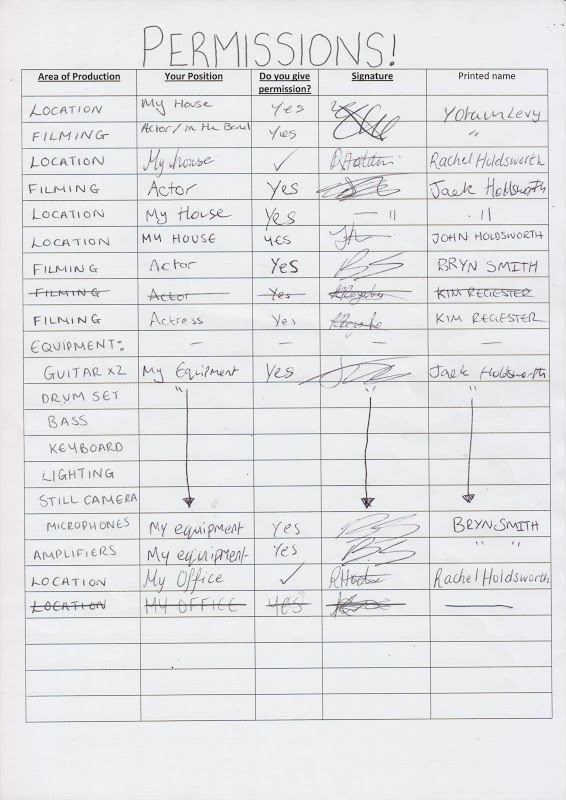 PERMISSIONS!
Area of Production Your Position Do you give permission? Signature Printed name
LOCATION My House Yes Yotam Levy
FILMING Actor/in the Band Yes "
LOCATION My house ✓ Rachel Holdsworth
FILMING Actor Yes Jack Holdsworth
LOCATION My House Yes — " . "
LOCATION MY HOUSE YES JOHN HOLDSWORTH
FILMING Actor Yes BRYN SMITH
FILMING Actor Yes KIM REGESTER
FILMING Actress Yes KIM REGESTER
EQUIPMENT: — — — —
GUITAR x2 My Equipment Yes Jack Holdsworth
DRUM SET " " "
BASS
KEYBOARD
LIGHTING
STILL CAMERA
MICROPHONES My equipment Yes BRYN SMITH
AMPLIFIERS My equipment Yes " "
LOCATION My Office ✓ Rachel Holdsworth
LOCATION MY OFFICE YES